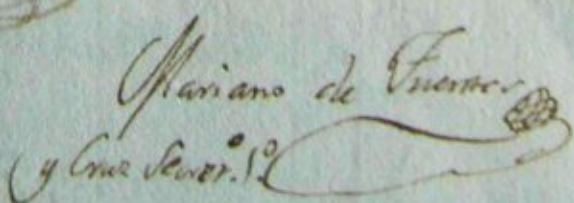 Mariano de Fuentes
y Cruz Secret.º 1.º